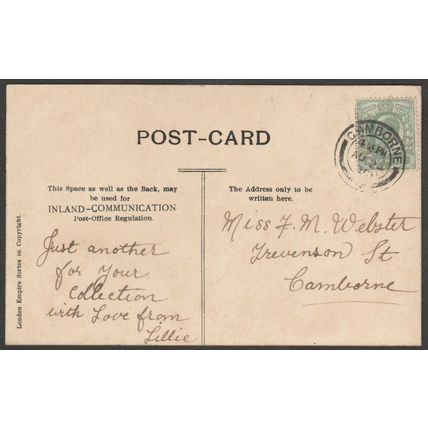 CAMBORNE
POST-CARD
This Space as well as the Back, may
be used for
INLAND-COMMUNICATION
Post-Office Regulation.
The Address only to be
written here.
Just another
for Your
Collection
with Love from
Lillie
Miss F. M. Webster
Trevenson St
Camborne
London Empire Series Copyright.